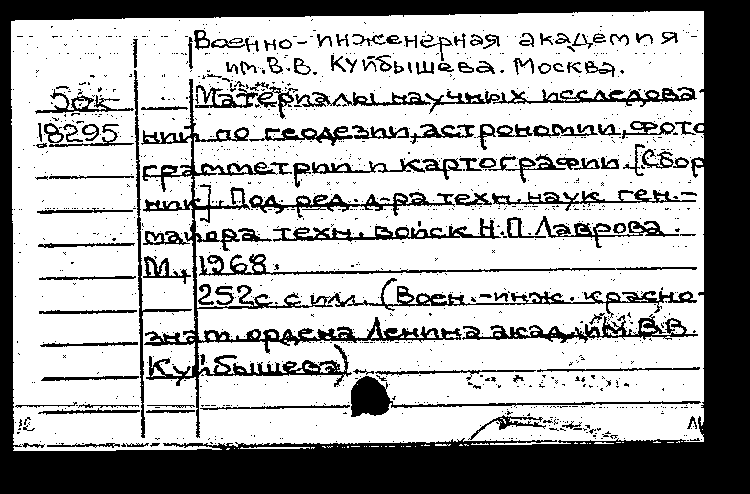 Военно-инженерная академия
им.В.В. Куйбышева. Москва.
5ок Материалы научных исследова-
18295 ний по геодезии, астрономии, фото
грамметрии и картографии. [Сбор
ник]. Под ред. д-ра техн. наук ген.-
майора техн. войск Н.П. Лаврова.
М., 1968.
252с. с илл. (Воен.-инж. красно-
знам. ордена Ленина акад. им. В.В.
Куйбышева)